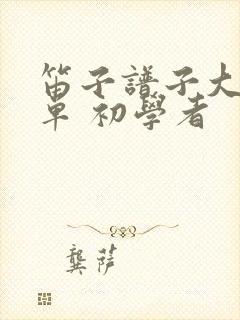 笛子譜子大
單 初學者
龔萍